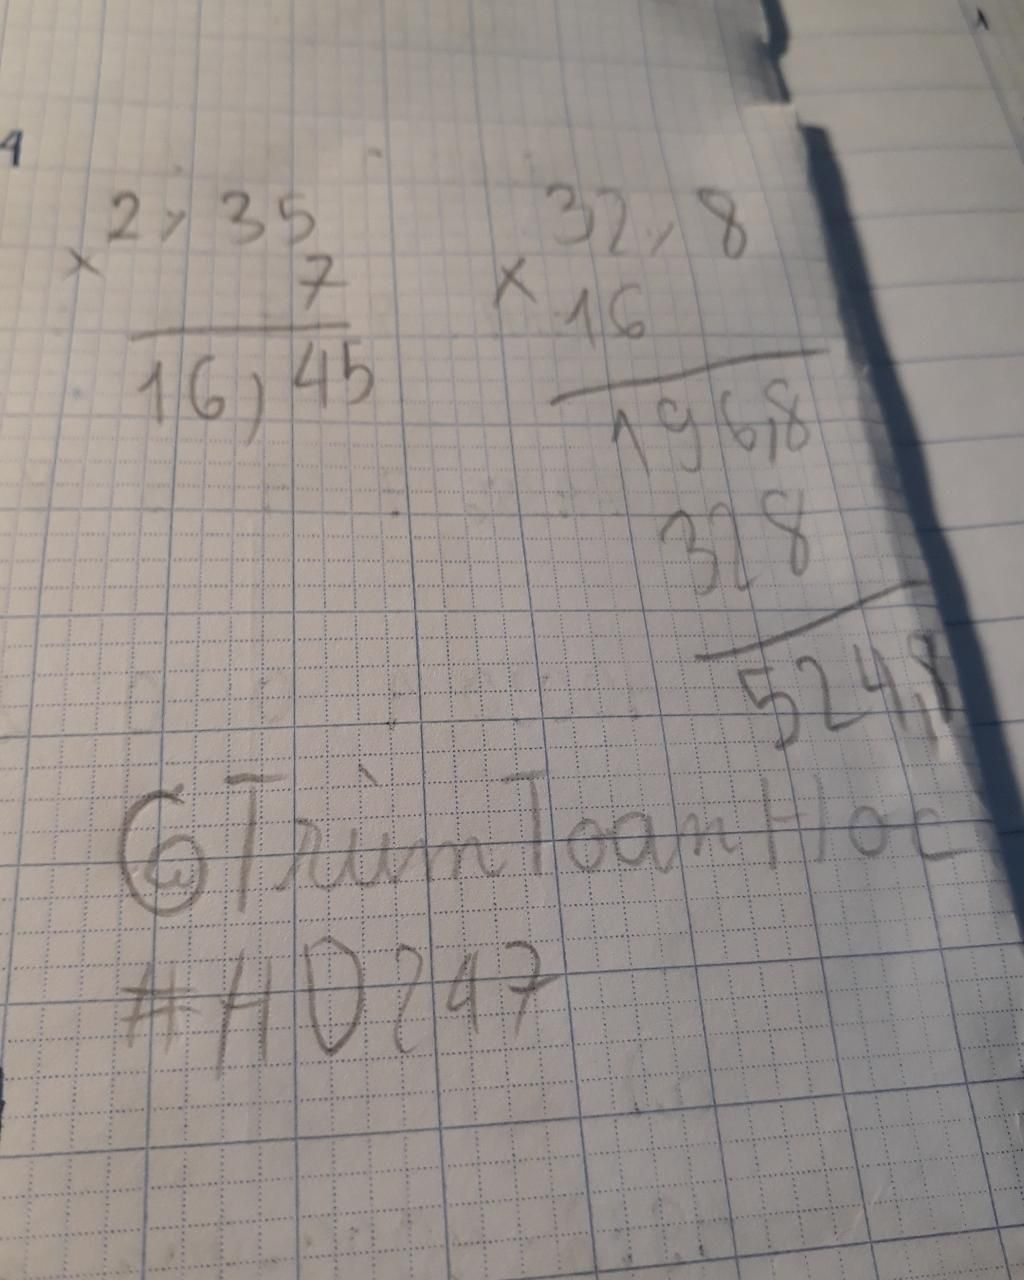 2,35
× 7
16,45
32,8
× 16
196,8
328
524,8
@TrùmToanHoc
#HD247